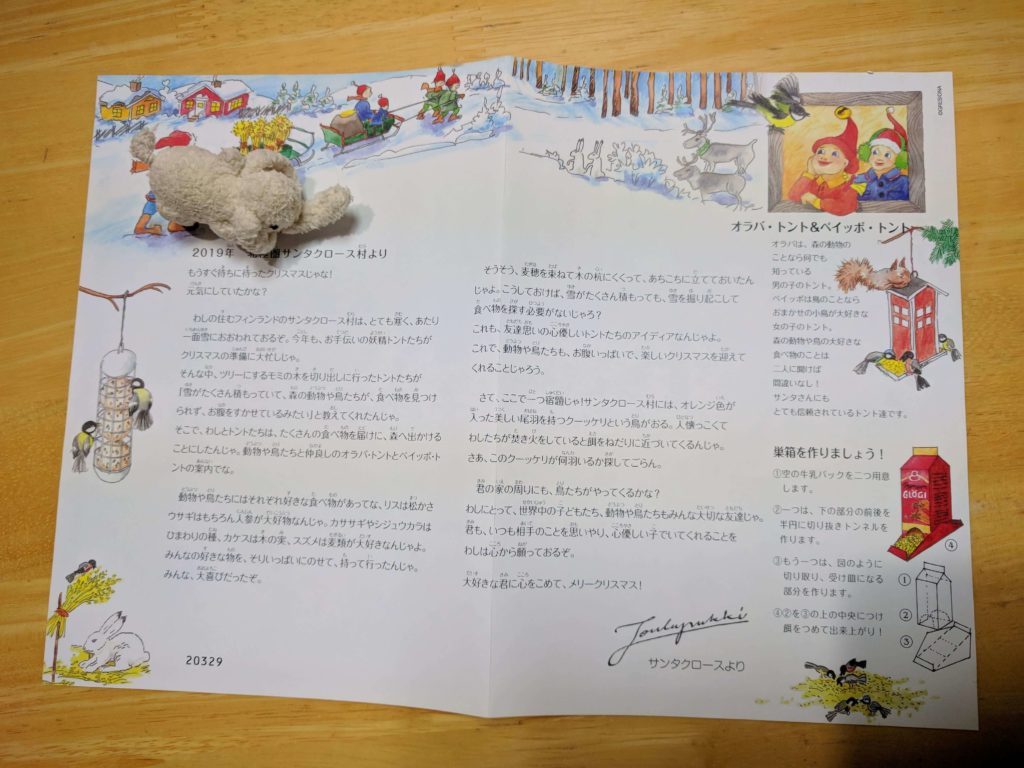 2019年
サンタクロース村より
もうすぐ待ちに待ったクリスマスじゃな!
元気にしていたかな?
わしの住むフィンランドのサンタクロース村は、とても寒く、あたり
一面雪におおわれておるぞ。今年も、お手伝いの妖精トントたちが
クリスマスの準備に大忙しじゃ。
そんな中、ツリーにするモミの木を切り出しに行ったトントたちが
「雪がたくさん積もっていて、森の動物や鳥たちが、食べ物を見つけ
られず、お腹をすかせているみたい!」と教えてくれたんじゃ。
そこで、わしとトントたちは、たくさんの食べ物を届けに、森へ出かける
ことにしたんじゃ。動物や鳥たちと仲良しのオラバ・トントとペイッポ・ト
ントの案内でな。
動物や鳥たちにはそれぞれ好きな食べ物があってな、リスは松かさ
ウサギはもちろん人参が大好物なんじゃ。カササギやシジュウカラは
ひまわりの種、カケスは木の実、スズメは麦類が大好きなんじゃよ。
みんなの好きな物を、そりいっぱいにのせて、持って行ったんじゃ。
みんな、大喜びだったぞ。
20329
そうそう、麦穂を束ねて木の杭にくくって、あちこちに立てておいたん
じゃよ。こうしておけば、雪がたくさん積もっても、雪を掘り起こして
食べ物を探す必要がないじゃろう?
これも、友達思いの心優しいトントたちのアイディアなんじゃよ。
これで、動物や鳥たちも、お腹いっぱいで、楽しいクリスマスを迎えて
くれることじゃろう。
さて、ここで一つ宿題じゃ!サンタクロース村には、オレンジ色が
入った美しい尾羽を持つクーッケリという鳥がおる。人懐っこくて
わしたちが焚き火をしていると餌をねだりに近づいてくるんじゃ。
さあ、このクーッケリが何羽いるか探してごらん。
君の家の周りにも、鳥たちがやってくるかな?
わしにとって、世界中の子どもたち、動物や鳥たちもみんな大切な友達じゃ。
君も、いつも相手のことを思いやり、心優しい子でいてくれることを
わしは心から願っておるぞ。
大好きな君に心をこめて、メリークリスマス!
Joulupukki
サンタクロースより
オラバ・トント&ペイッポ・トント
オラバは、森の動物の
ことなら何でも
知っている
男の子のトント。
ペイッポは鳥のことなら
おまかせの小鳥が大好きな
女の子のトント。
森の動物や鳥の大好きな
食べ物のことは
二人に聞けば
間違いなし!
サンタさんにも
とても信頼されているトント達です。
巣箱を作りましょう!
①空の牛乳パックを二つ用意
します。
②一つは、下の部分の前後を
半円に切り抜きトンネルを
作ります。
③もう一つは、図のように
切り取り、受け皿になる
部分を作ります。
④②を③の上の中央につけ
餌をつめて出来上がり!
GLÖGI
④
①
②
③